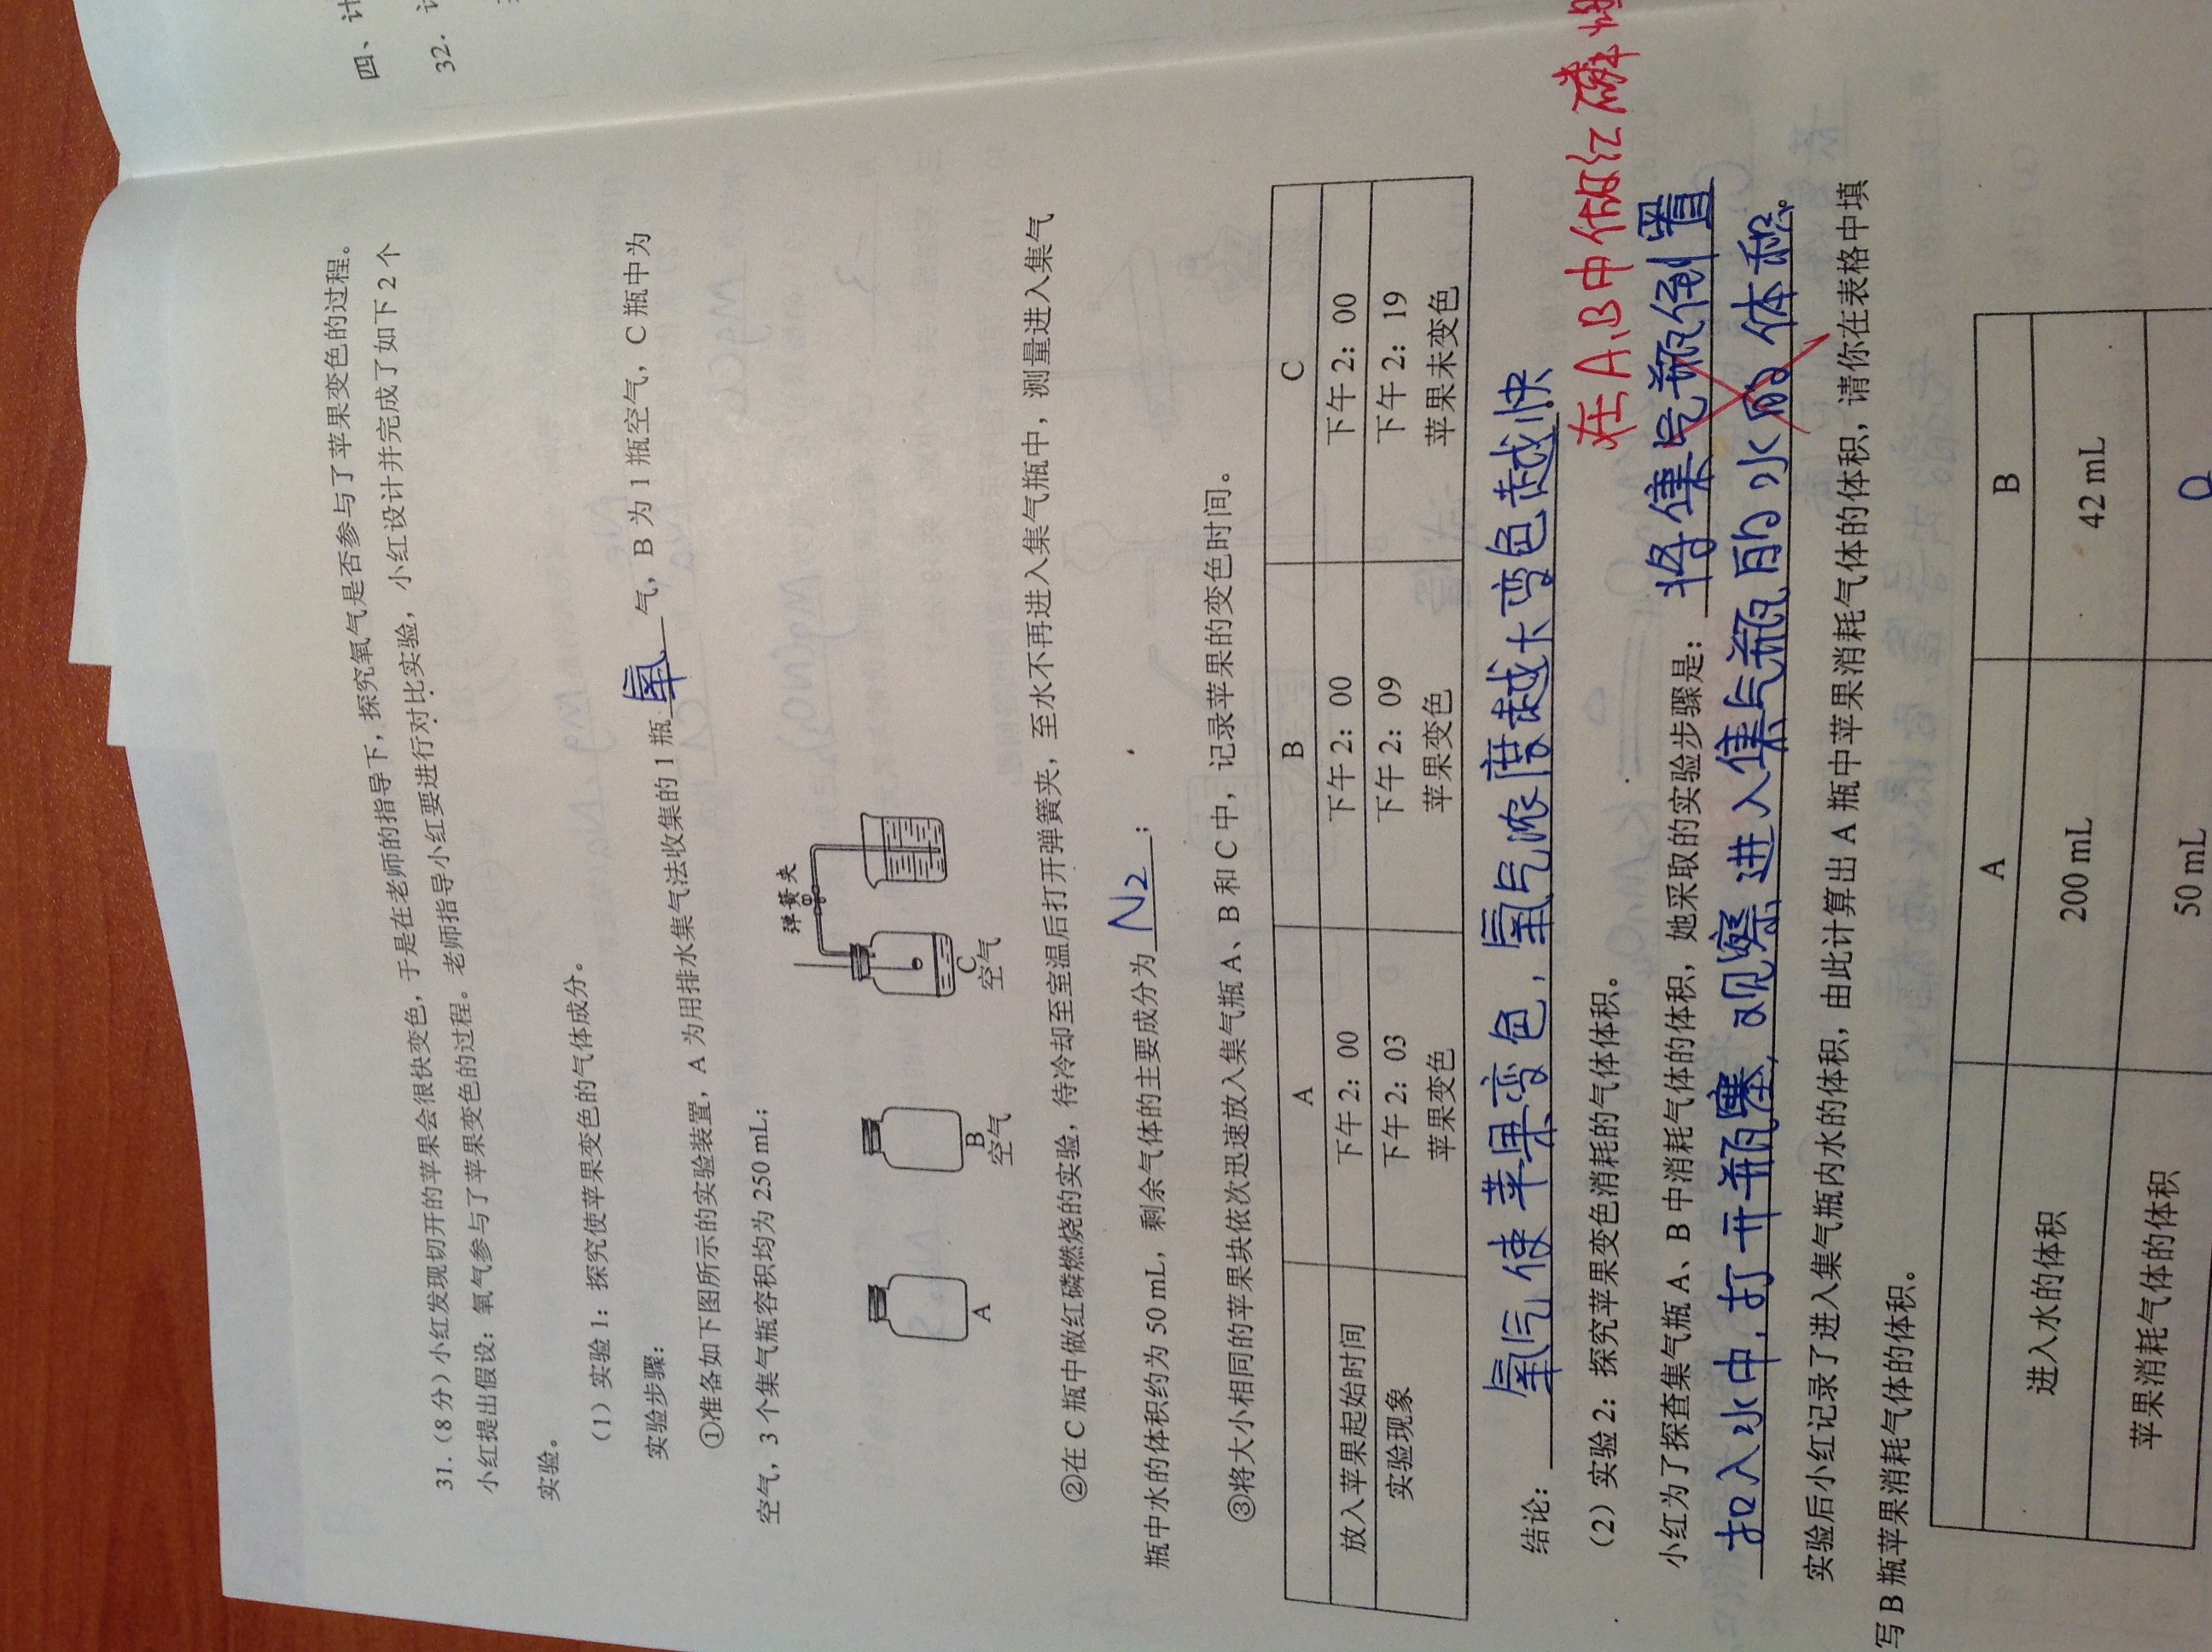 31.（8 分）小红发现切开的苹果会很快变色，于是在老师的指导下，探究氧气是否参与了苹果变色的过程。
小红提出假设：氧气参与了苹果变色的过程。老师指导小红要进行对比实验，小红设计并完成了如下 2 个
实验。
（1）实验 1：探究使苹果变色的气体成分。
实验步骤：
①准备如下图所示的实验装置，A 为用排水集气法收集的 1 瓶 氧 气，B 为 1 瓶空气，C 瓶中为
空气，3 个集气瓶容积均为 250 mL；
弹簧夹
A B C
空气 空气
②在 C 瓶中做红磷燃烧的实验，待冷却至室温后打开弹簧夹，至水不再进入集气瓶中，测量进入集气
瓶中水的体积约为 50 mL，剩余气体的主要成分为 N2 ；
③将大小相同的苹果块依次迅速放入集气瓶 A、B 和 C 中，记录苹果的变色时间。
A B C
放入苹果起始时间 下午 2：00 下午 2：00 下午 2：00
实验现象 下午 2：03 下午 2：09 下午 2：19
苹果变色 苹果变色 苹果未变色
结论： 氧气使苹果变色，氧气浓度越大变色越快
（2）实验 2：探究苹果变色消耗的气体体积。
在A、B中做红磷
小红为了探查集气瓶 A、B 中消耗气体的体积，她采取的实验步骤是： 将集气瓶倒置
扣入水中，打开瓶塞，观察进入集气瓶的水的体积。
实验后小红记录了进入集气瓶内水的体积，由此计算出 A 瓶中苹果消耗气体的体积，请你在表格中填
写 B 瓶苹果消耗气体的体积。
A B
进入水的体积 200 mL 42 mL
苹果消耗气体的体积 50 mL
四、计
32.